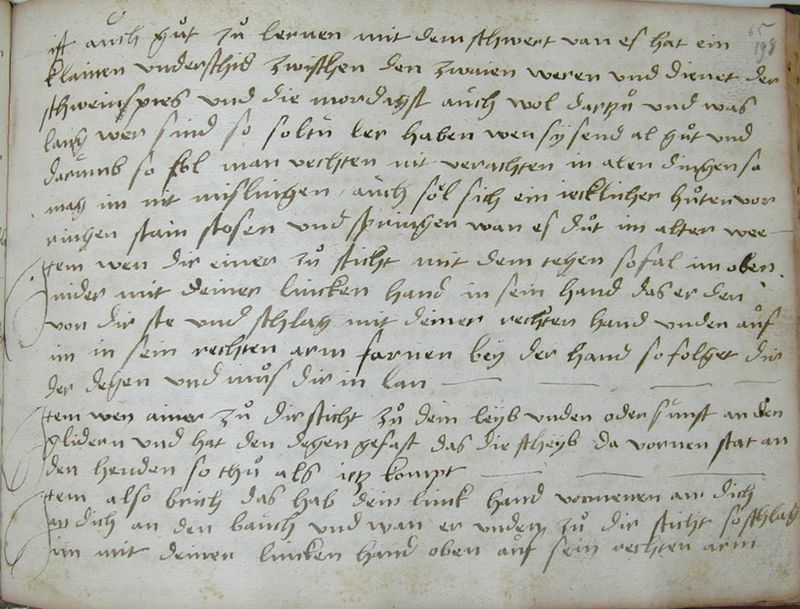 65
198
ist auch gůt zů lernen mit dem schwert wan es hat ein
klainen underschid zwischen den zwaien weren und dienet der
schweinspies und die mordagst auch wol dartzů und was
lang wer sind so soltu ler haben wen sy send al gůt und
darumb so sol man vechten nit verachten in alen dingen so
mag im nit mislingen auch sol sich ein iecklicher hůten vor
ringen stain stosen und springen wan es důt im alter wee
Item wen dir einer zů sticht mit dem tegen so fal im oben
nider mit deiner lincken hand in sein hand das er den
von dir ste und schlag mit deiner rechten hand unden auf
im in sein rechten arm farnen bey der hand so folget dir
der degen und můs dir in lan
Item wen ainer zů dir sticht zů dem leyb unden oder sunst an den
glidern und hat den degen gefast das die scheyb da vornen stat an
den henden so thů als ietz kompt
Item also brich das hab dein linck hand vornenen an dich
an dich an den bauch und wan er unden zů dir sticht so schlag
im mit deinen lincken hand oben auf sein rechten arm